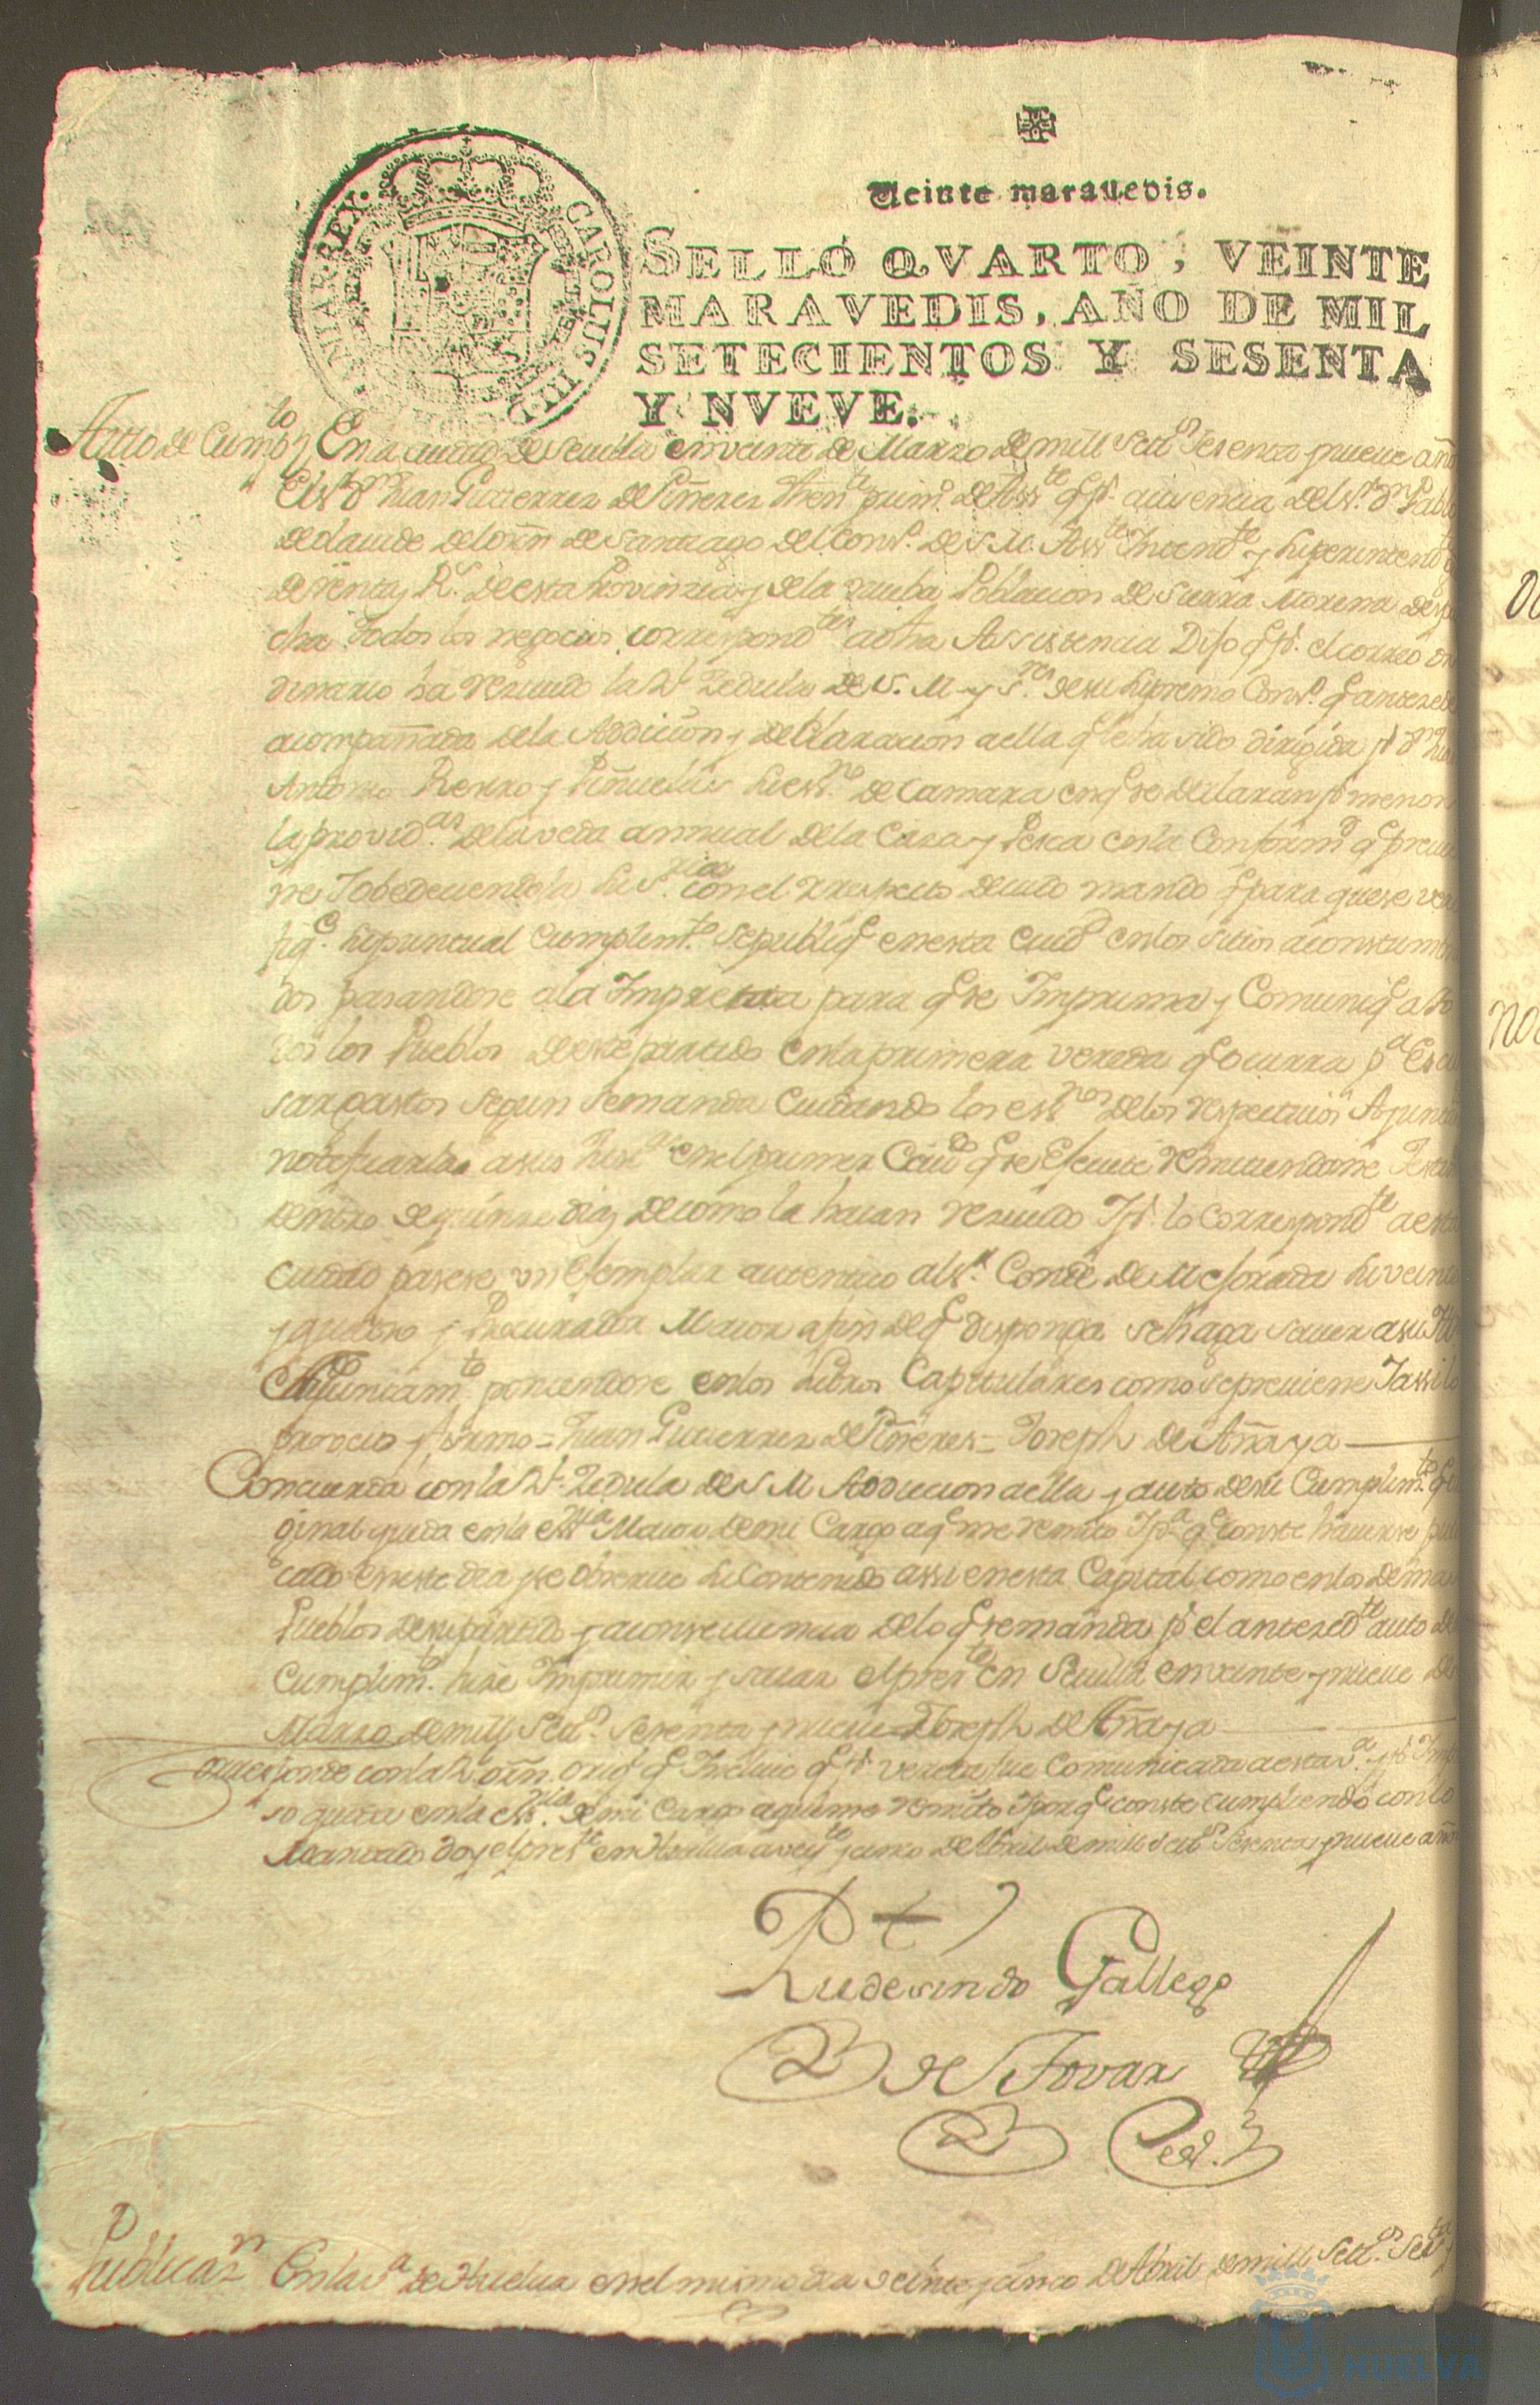 Veinte maravedis.
SELLO QVARTO, VEINTE
MARAVEDIS, AÑO DE MIL
SETECIENTOS Y SESENTA
Y NVEVE.
CAROLUS III D HISPANIAR REX
Auto de Cumpto En la ciudad de Sevilla en veinte de Marzo de mill Setts Sesenta y nueve añ
El Sr Dn Juan Gutierrez de Piñeres then.te prim.o de Ass.te q.e p.r ausencia del S.r Dn Pabl
de Olavide del orn de Santiago del Cons.o de S. M. Ass.te Intend.te y Superintend.te
de rentas R.s de esta Provinzia y de la nueba Poblacion de Sierra Morena despa
cha todos los negocios correspond.tes a dha Assistencia Dijo q.e p.r el correo or
dinario ha rezivido la R.l Zedula de S. M. y S.res de su Supremo Cons.o q.e antezede
acompañada de la Addicion y declaracion a ella q.e le ha sido dirigida p.r Dn Ju
Antonio Rerro y Piñuelas su ess.no de Camara en q.e se declaran p.r menor
las provid.as de la veda annual de la Caza y Pesca en la Conform.d q.e previe
ne Y obedeciendola su S.ria con el respecto devido mando q.e para que se veri
fiq.e su puntual Cumplim.to se publiq.e en esta Ciud.d en los sitios acostumbra
dos pasandose a la Imprenta para q.e se Imprima y Comuniq.e a to
dos los Pueblos de este partido en la primera vereda q.e ocurra p.a Escu
sar gastos segun se manda Cuidando los ess.nos de los respectivos Ayunta
notificarla a sus Just.as en el primer Cav.do q.e se Efectue remitiendome Test
dentro de quinze dias de como la haian rezivido Y p.r lo Correspond.te a esta
Ciudad pasese un Exemplar autentico al S.r Conde de Mejorada su veinte
y quatro y Procurador Maior a fin de q.e disponga se haga saver a su Ill
Ayuntam.to poniendose en los Libros Capitulares como se previene Y assi lo
proveio y firmo = Juan Gutierrez de Piñeres = Joseph de Anaya
Concuerda con la R.l Zedula de S. M. Addicion a ella y auto de su Cumplim.to q.e ori
ginal queda en la ess.nia Maior de mi Cargo a q.e me remito Y p.a q.e conste haverse publi
cado en este dia y se observe su Contenido assi en esta Capital como en los demas
Pueblos de su partido y a consecuencia de lo q.e se manda p.r el anteced.te auto de
Cumplim.to hize Imprimir y sacar el pres.te en Sevilla en veinte y nueve de
Marzo de mill Sett.s Sesenta y nueve = Joseph de Anaya
Corresponde con la R.l orn. orig.l q.e Incluie q.e p.r vereda fue Comunicada a esta V.a y p.r Impre
so queda en la ess.nia de mi Cargo a que me remito Y por q.e conste cumpliendo con lo
Mandado doy el pres.te en Huelva a veinte y cinco de Abril de mill Sett.s Sesenta y nueve años
Rudesindo Gallego
de Tovar
Publicaz.n En la V.a de Huelva en el mismo dia veinte y cinco de Abril de mill Sett.s Ses.ta
HUELVA